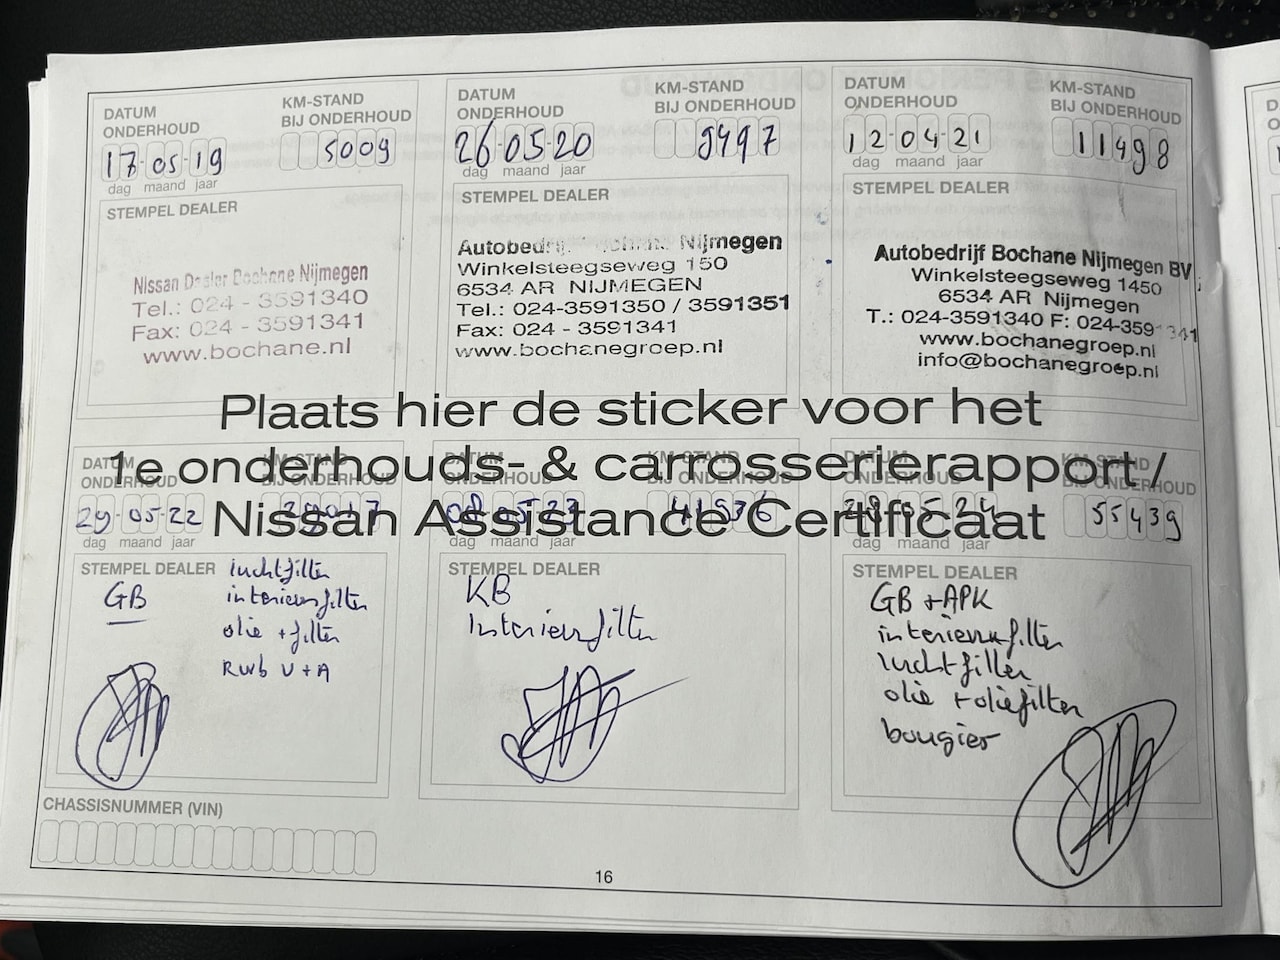 DATUM
ONDERHOUD
17-05-19
dag maand jaar
KM-STAND
BIJ ONDERHOUD
5009
STEMPEL DEALER
Nissan Dealer Bochane Nijmegen
Tel.: 024 - 3591340
Fax: 024 - 3591341
www.bochane.nl
DATUM
ONDERHOUD
26-05-20
dag maand jaar
KM-STAND
BIJ ONDERHOUD
9497
STEMPEL DEALER
Autobedrijf Bochane Nijmegen
Winkelsteegseweg 150
6534 AR NIJMEGEN
Tel.: 024-3591350 / 3591351
Fax: 024 - 3591341
www.bochanegroep.nl
DATUM
ONDERHOUD
12-04-21
dag maand jaar
KM-STAND
BIJ ONDERHOUD
11498
STEMPEL DEALER
Autobedrijf Bochane Nijmegen BV
Winkelsteegseweg 1450
6534 AR Nijmegen
T.: 024-3591340 F: 024-3591341
www.bochanegroep.nl
info@bochanegroep.nl
Plaats hier de sticker voor het
1e onderhouds- & carrosserierapport /
Nissan Assistance Certificaat
DATUM
ONDERHOUD
29-05-22
dag maand jaar
KM-STAND
BIJ ONDERHOUD
STEMPEL DEALER
GB
luchtfilter
interieurfilter
olie + filter
Rwb V+A
DATUM
ONDERHOUD
08 05 23
dag maand jaar
KM-STAND
BIJ ONDERHOUD
41936
STEMPEL DEALER
KB
Interieurfilter
DATUM
ONDERHOUD
28 05 24
dag maand jaar
KM-STAND
BIJ ONDERHOUD
55439
STEMPEL DEALER
GB + APK
interieurfilter
luchtfilter
olie + oliefilter
bougies
CHASSISNUMMER (VIN)
16